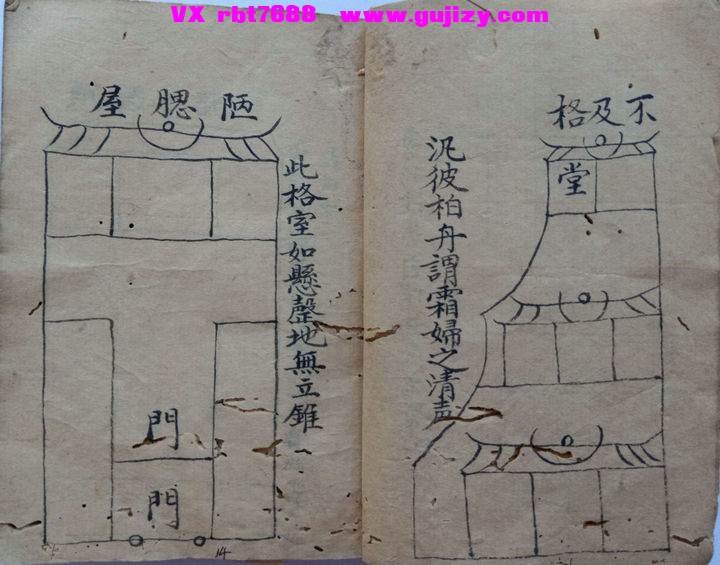 VX rbt7688 www.gujizy.com
不及格
堂
汎彼柏舟謂霜婦之清声
陋腮屋
此格室如懸罄地無立錐
門
門
14